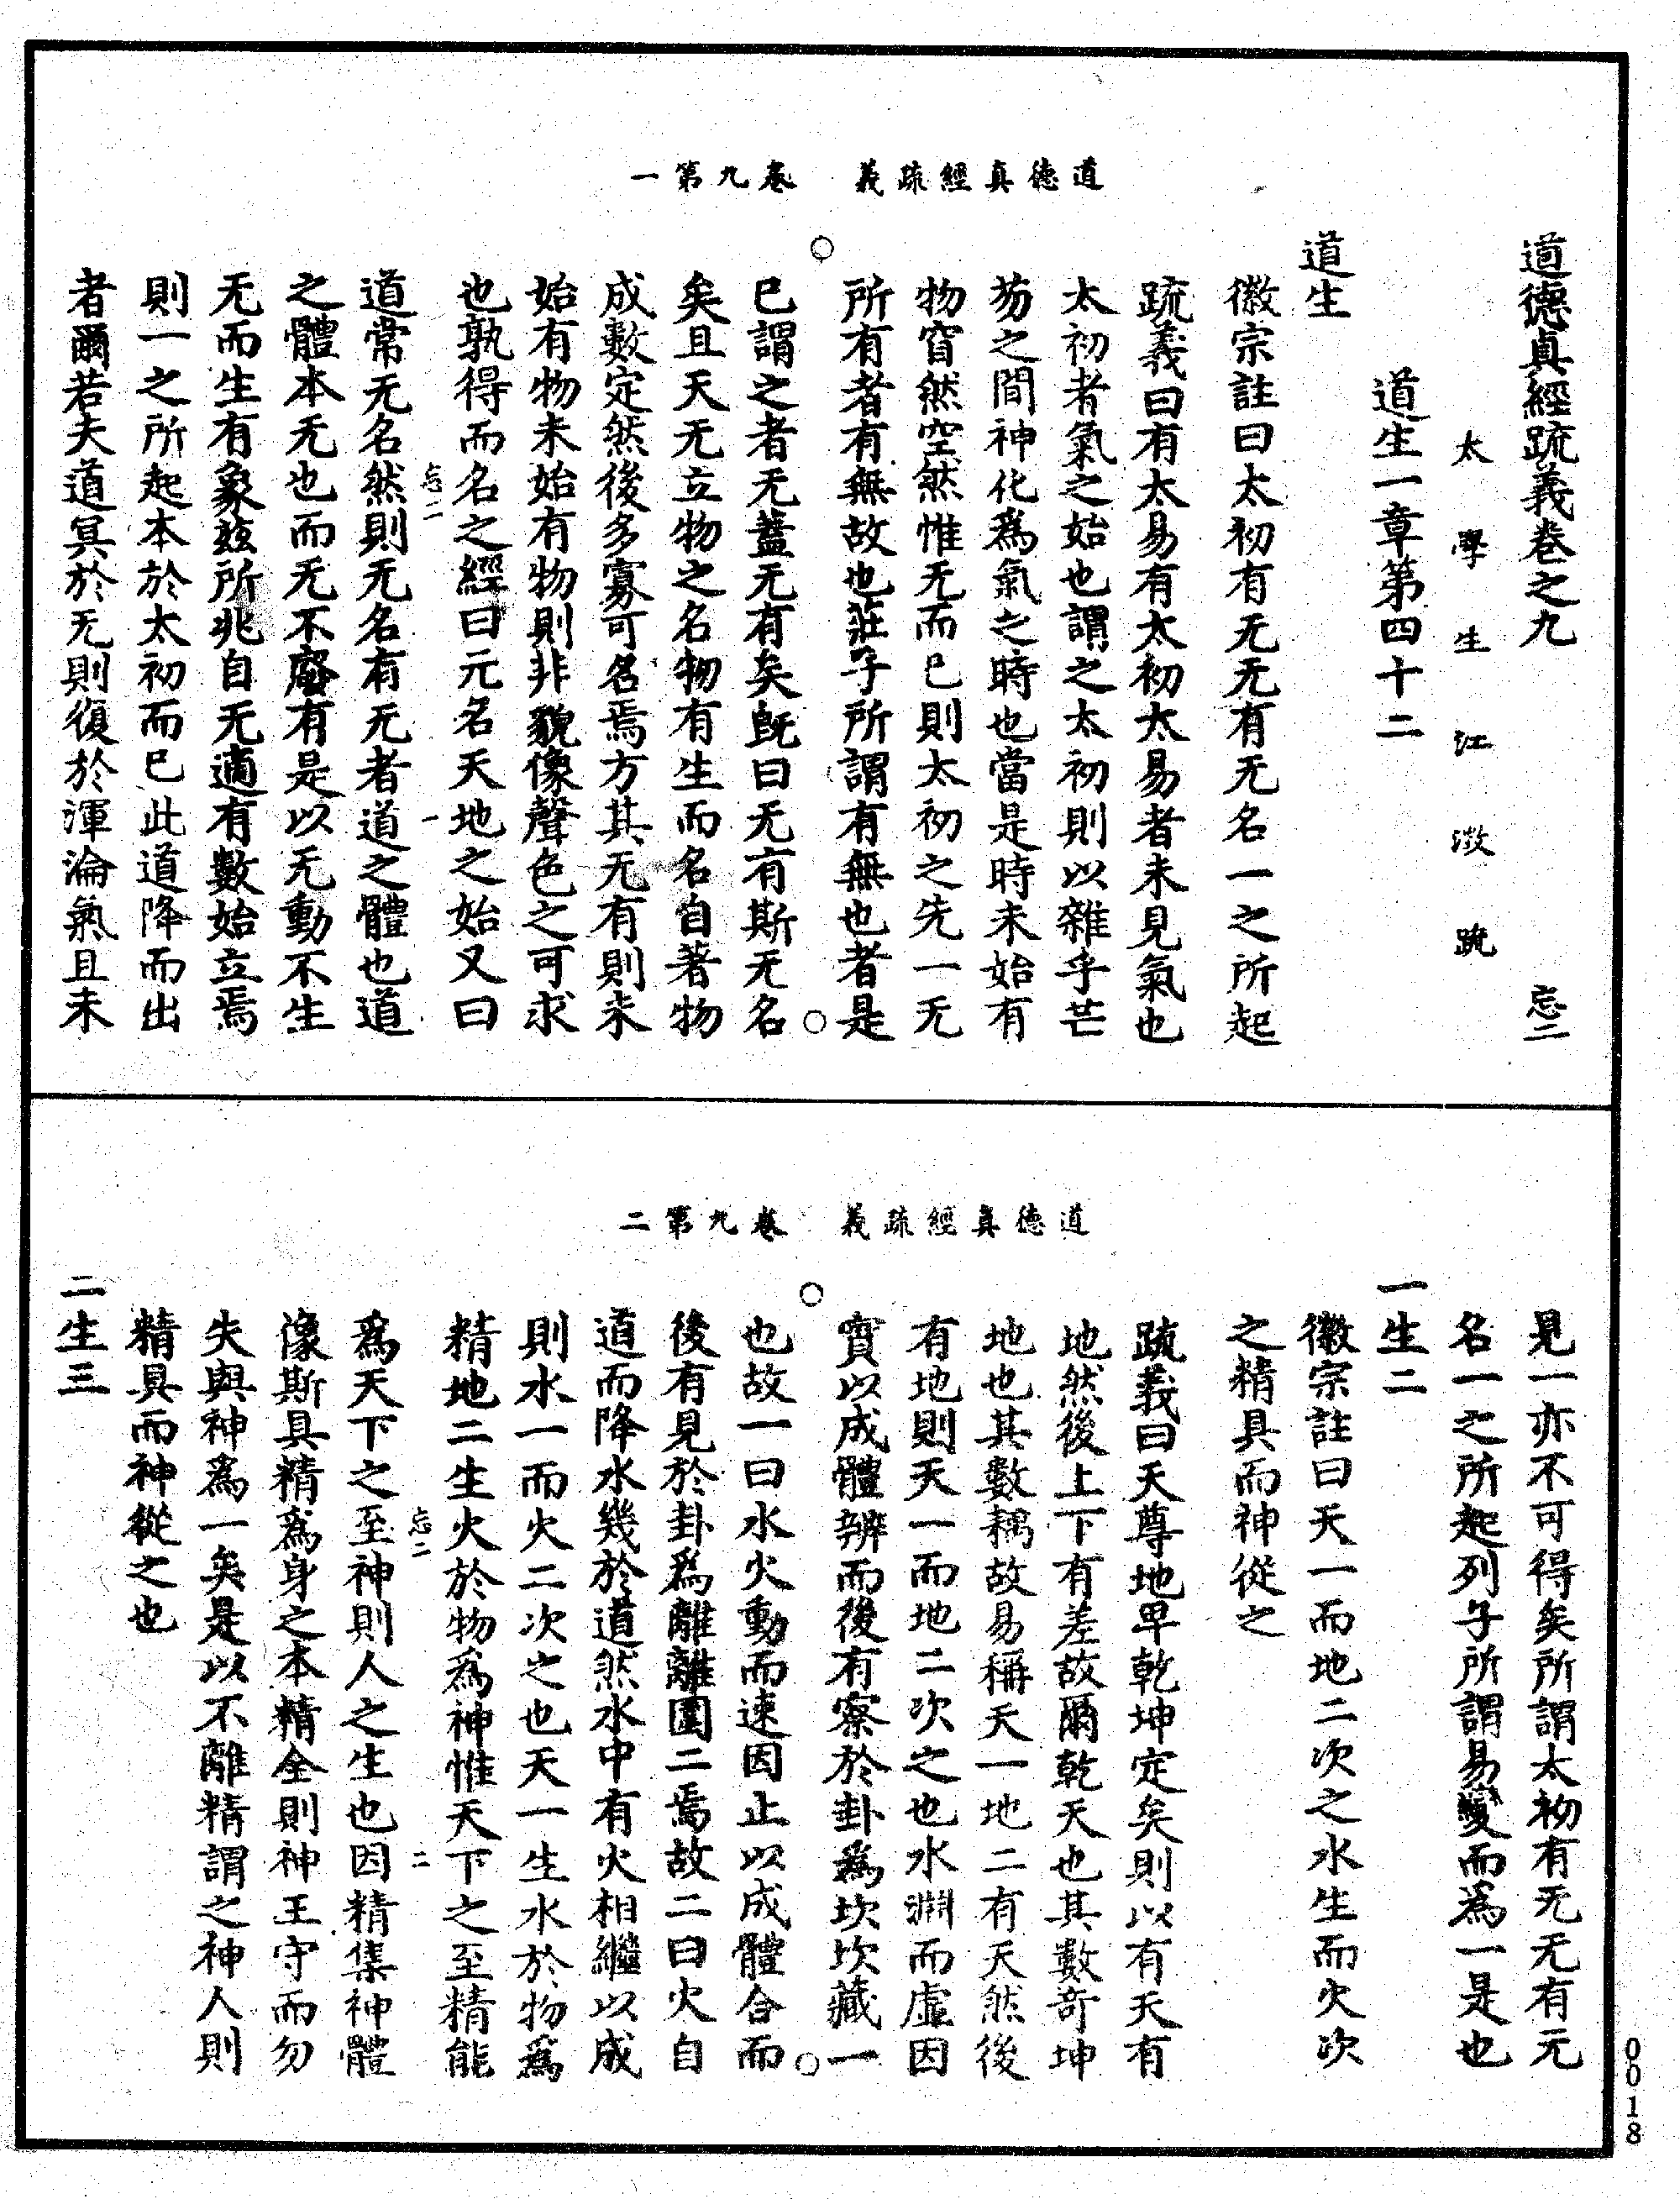 道德真經疏義　卷九第一
道德真經疏義卷之九　忘二
太學生江澂疏
道生一章第四十二
道生一
徽宗註曰太初有无无有无名一之所起
疏義曰有太易有太初太易者未見氣也
太初者氣之始也謂之太初則以雜乎芒
芴之間神化爲氣之時也當是時未始有
物窅然空然惟无而已則太初之先一无
所有者有無故也莊子所謂有無也者是
已謂之者无蓋无有矣旣曰无有斯无名
矣且天无立物之名物有生而名自著物
成數定然後多寡可名焉方其无有則未
始有物未始有物則非貌像聲色之可求
也孰得而名之經曰无名天地之始又曰
忘二　一
道常无名然則无名有无者道之體也道
之體本无也而无不廢有是以无動不生
无而生有象玆所兆自无適有數始立焉
則一之所起本於太初而已此道降而出
者爾若夫道冥於无則復於渾淪氣且未
道德真經疏義　卷九第二
見一亦不可得矣所謂太初有无无有无
名一之所起列子所謂易變而爲一是也
一生二
徽宗註曰天一而地二次之水生而火次
之精具而神從之
疏義曰天尊地卑乾坤定矣則以有天有
地然後上下有差故爾乾天也其數奇坤
地也其數耦故易稱天一地二有天然後
有地則天一而地二次之也水淵而虛因
實以成體辨而後有察於卦爲坎坎藏一
也故一曰水火動而速因止以成體合而
後有見於卦爲離離圍二焉故二曰火自
道而降水幾於道然水中有火相繼以成
則水一而火二次之也天一生水於物爲
精地二生火於物爲神惟天下之至精能
忘二　二
爲天下之至神則人之生也因精集神體
像斯具精爲身之本精全則神王守而勿
失與神爲一矣是以不離精謂之神人則
精具而神從之也
二生三
0018